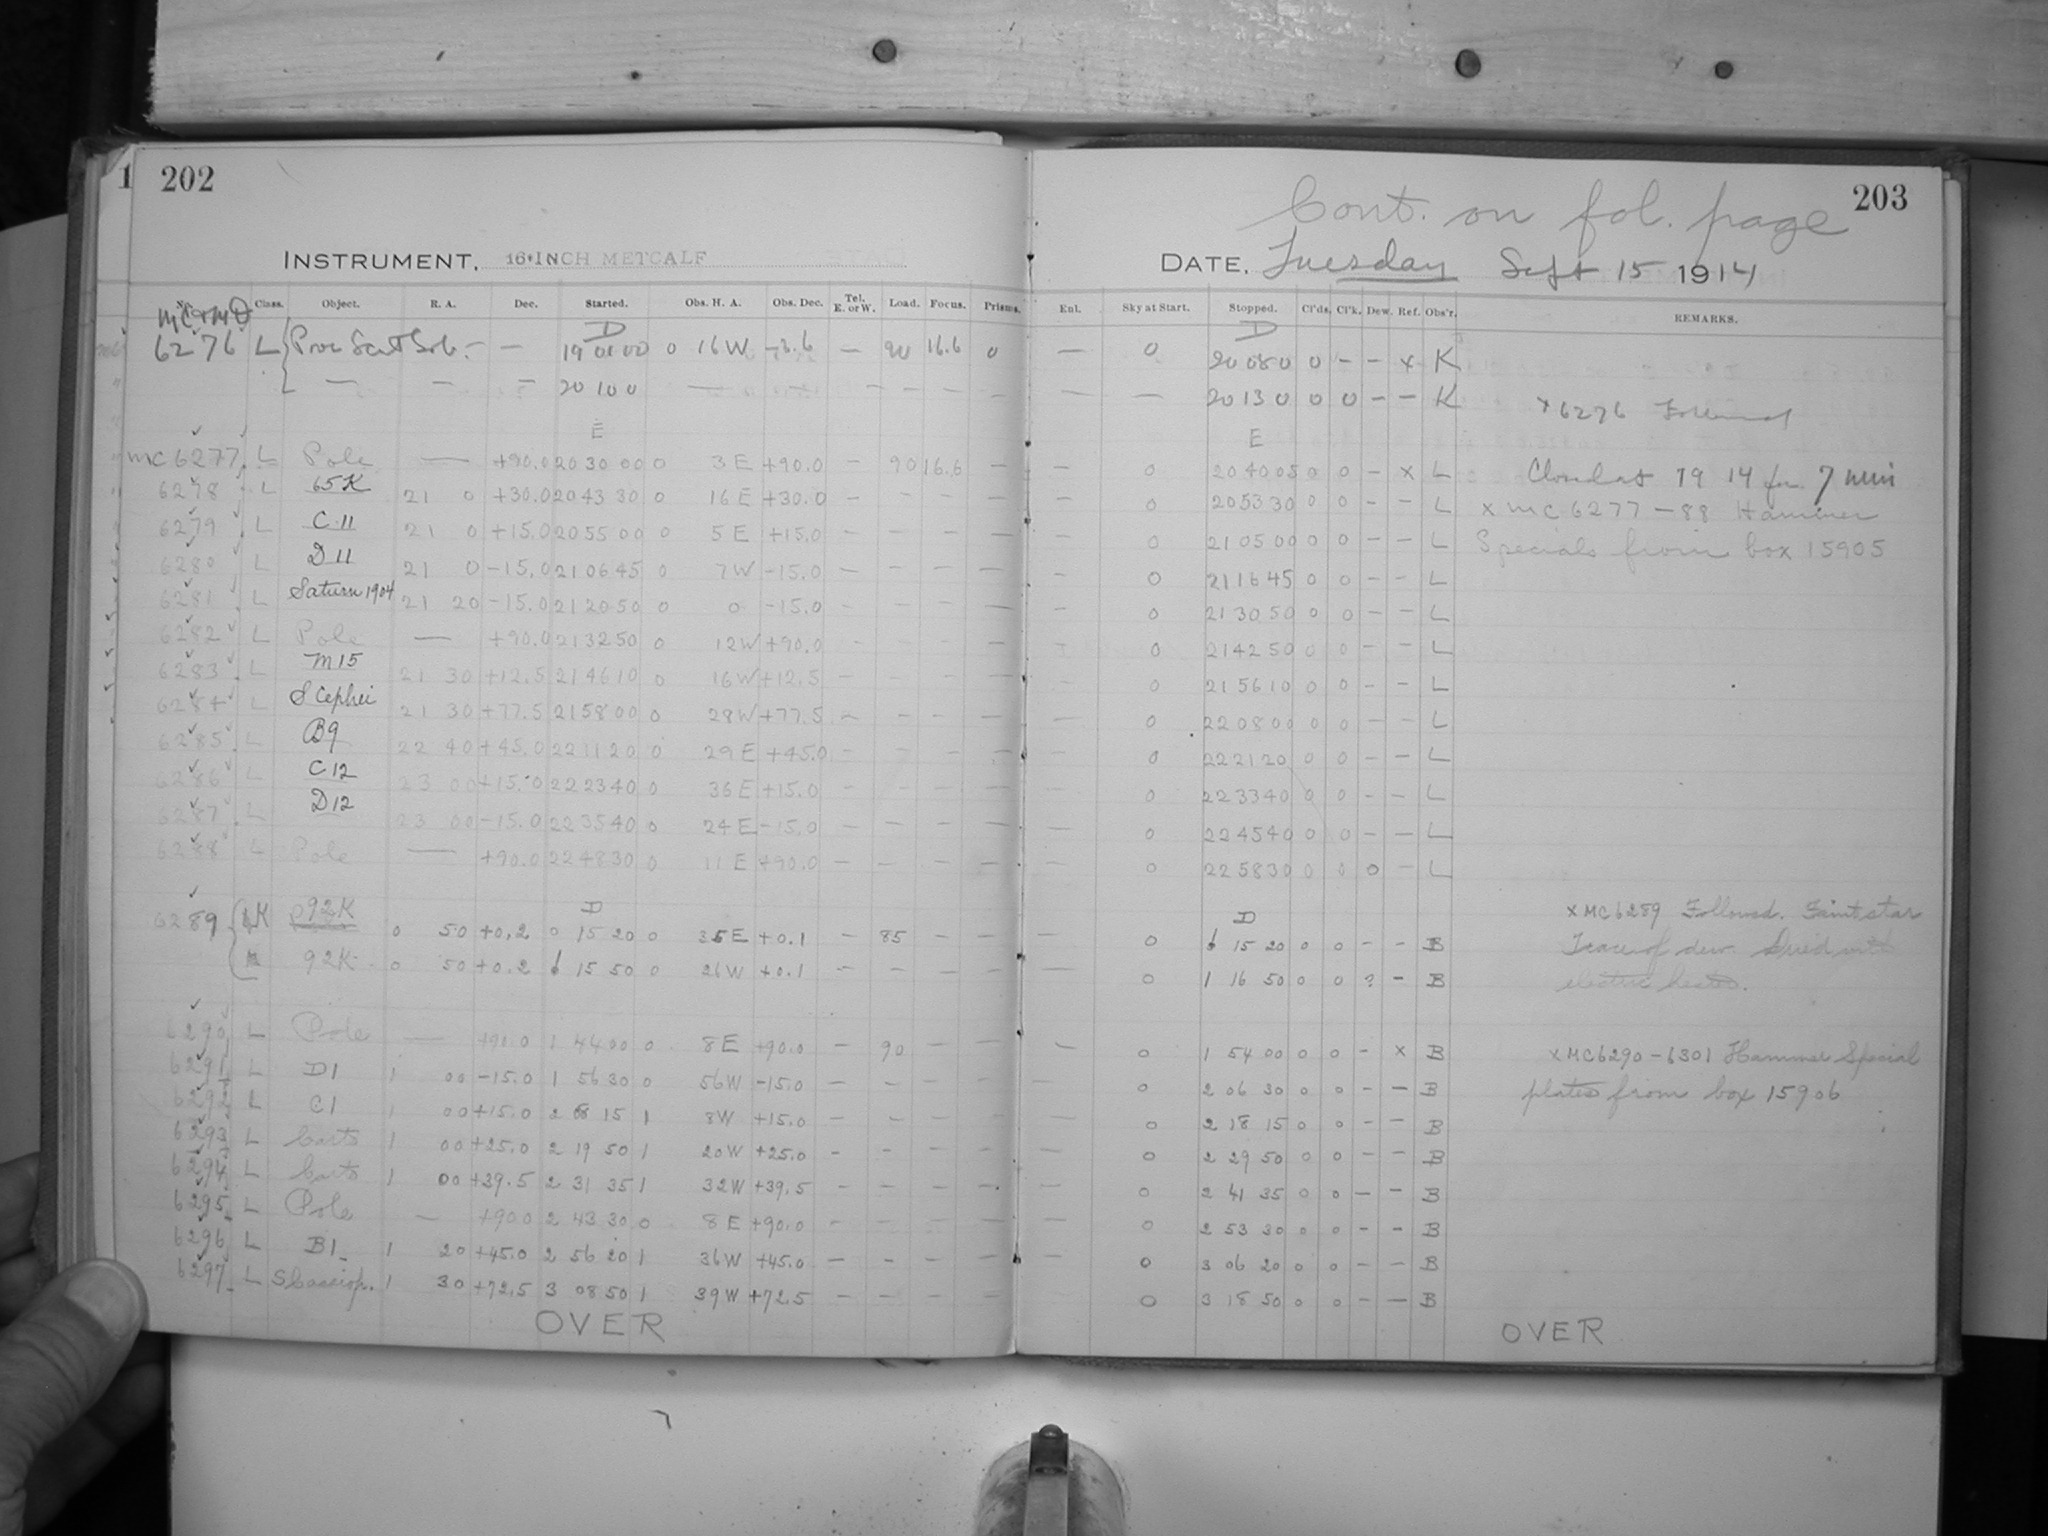 1 202
203
Cont. on fol. page
INSTRUMENT, 16-INCH METCALF
DATE, Tuesday Sept 15 1914
No. Class. Object. R. A. Dec. Started. Obs. H. A. Obs. Dec. Tel. E. or W. Load. Focus. Prisms. Enl. Sky at Start. Stopped. Cl'ds. Cl'k. Dew. Ref. Obs'r. REMARKS.
MC & MD
D D
6276 L — — 19 01 00 0 16 W — 90 16.6 0 — 0 20 08 0 0 — — x K
L — — — 20 10 0 — — — — — — — — 20 13 0 0 0 — — K x 6276 Followed
E E
MC 6277 L Pole — +90.0 20 30 00 0 3 E +90.0 — 90 16.6 — — 0 20 40 05 0 0 — x L 19 14 for 7 min
6278 L 65K 21 0 +30.0 20 43 30 0 16 E +30.0 — — — — — 0 20 53 30 0 0 — — L x MC 6277-88 Hammer
6279 L C 11 21 0 +15.0 20 55 00 0 5 E +15.0 — — — — 0 21 05 00 0 0 — — L Specials from box 15905
6280 L D 11 21 0 -15.0 21 06 45 0 7 W -15.0 — — — — — 0 21 16 45 0 0 — — L
6281 L Saturn 1904 21 20 -15.0 21 20 50 0 0 -15.0 — — — — 0 21 30 50 0 0 — — L
6282 L Pole — +90.0 21 32 50 0 12 W +90.0 — — — — — 0 21 42 50 0 0 — — L
6283 L M15 21 30 +12.5 21 46 10 0 16 W +12.5 — — — — — 0 21 56 10 0 0 — — L
6284 L S Cephei 21 30 +77.5 21 58 00 0 28 W +77.5 — — — — — 0 22 08 00 0 0 — — L
6285 L B9 22 40 +45.0 22 11 20 0 29 E +45.0 — — — — — 0 22 21 20 0 0 — — L
6286 L C 12 23 00 +15.0 22 23 40 0 36 E +15.0 — — — — — 0 22 33 40 0 0 — — L
6287 L D 12 23 00 -15.0 22 35 40 0 24 E -15.0 — — — — — 0 22 45 40 0 0 — — L
6288 L Pole — +90.0 22 48 30 0 11 E +90.0 — — — — — 0 22 58 30 0 0 0 — L
D D
6289 K 92K 0 50 +0.2 0 15 20 0 35 E +0.1 — 85 — — — 0 1 15 20 0 0 — — B x MC 6289 Followed. Faint star
92K 0 50 +0.2 1 15 50 0 26 W +0.1 — — — — — 0 1 16 50 0 0 ? — B Trace of dew dried with
electric heater.
6290 L Pole — +90.0 1 44 00 0 8 E +90.0 — 90 — — — 0 1 54 00 0 0 — x B x MC 6290-6301 Hammer Special
6291 L D1 1 00 -15.0 1 56 30 0 56 W -15.0 — — — — — 0 2 06 30 0 0 — — B plates from box 15906
6292 L C1 1 00 +15.0 2 08 15 1 8 W +15.0 — — — — — 0 2 18 15 0 0 — — B
6293 L 1 00 +25.0 2 19 50 1 20 W +25.0 — — — — — 0 2 29 50 0 0 — — B
6294 L 1 00 +39.5 2 31 35 1 32 W +39.5 — — — — — 0 2 41 35 0 0 — — B
6295 L Pole — +90.0 2 43 30 0 8 E +90.0 — — — — — 0 2 53 30 0 0 — — B
6296 L B1 1 20 +45.0 2 56 20 1 36 W +45.0 — — — — — 0 3 06 20 0 0 — — B
6297 L S Cassiop. 1 30 +72.5 3 08 50 1 39 W +72.5 — — — — 0 3 18 50 0 0 — — B
OVER OVER